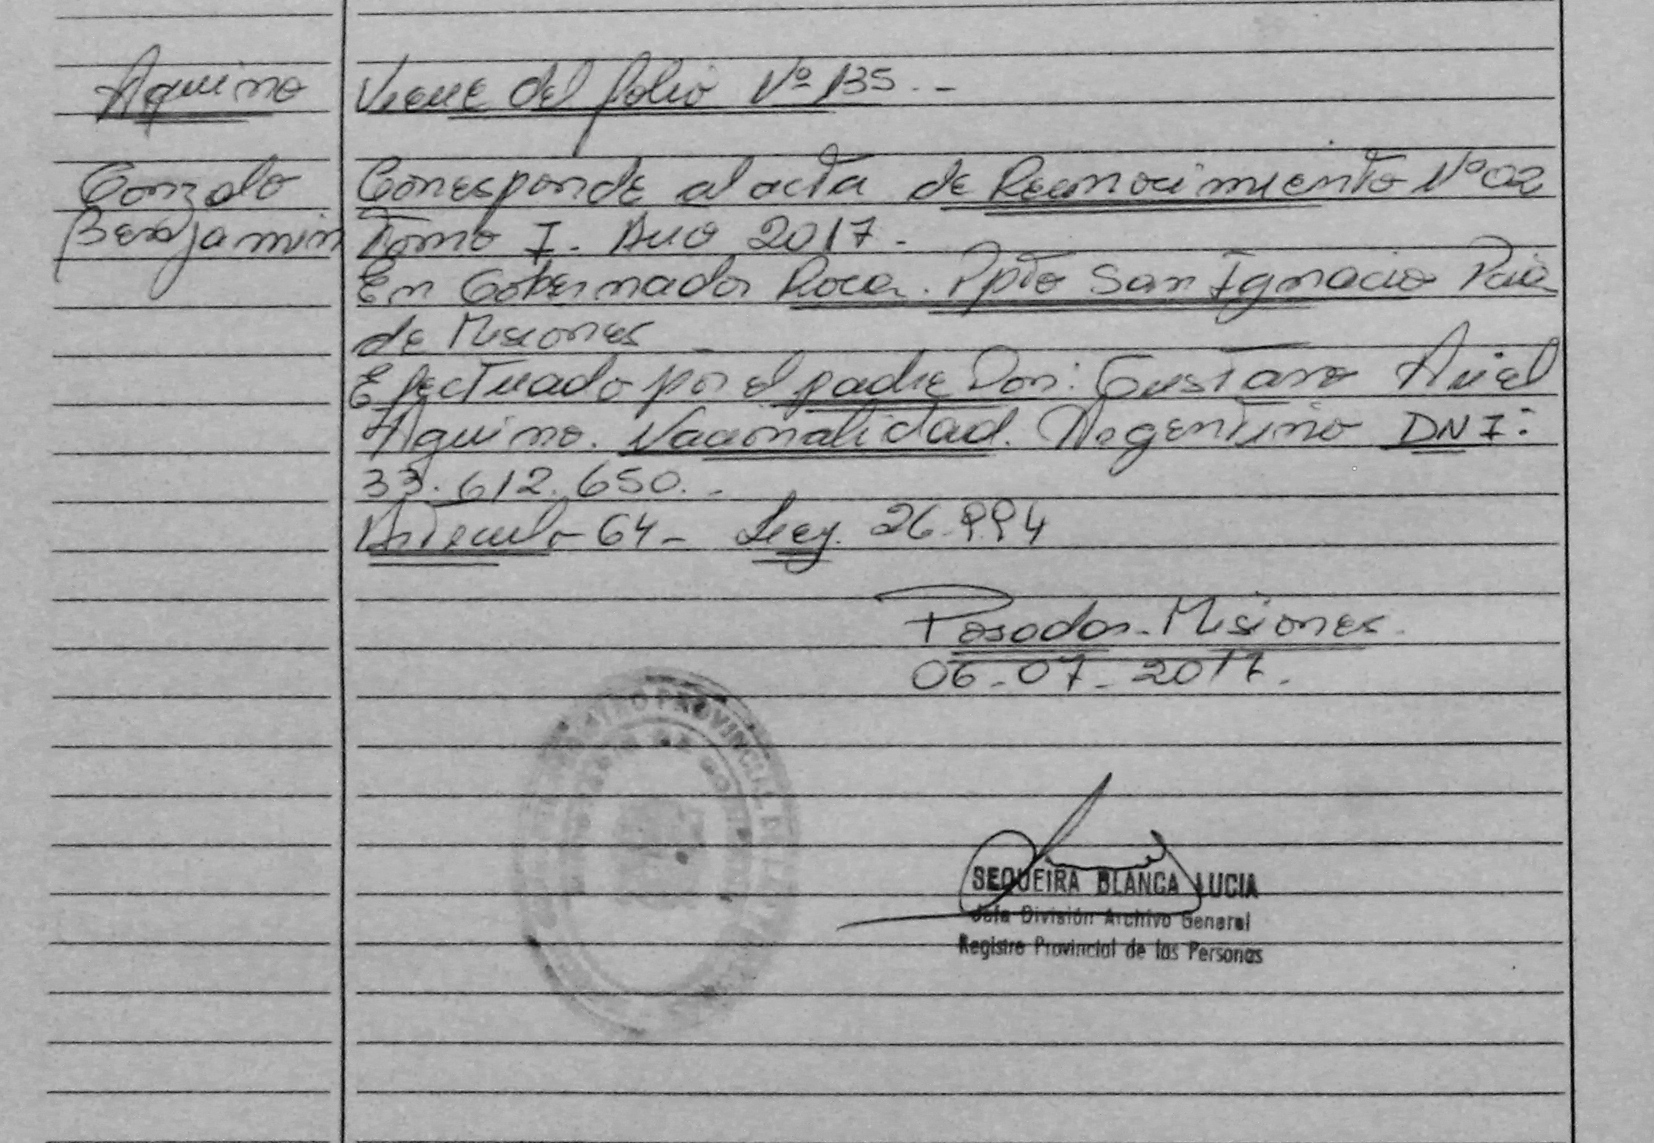 Aquino
Viene del folio Nº 135.-
Gonzalo
Benjamin
Corresponde al acta de Reconocimiento Nº 02
Tomo I. Año 2017.
En Gobernador Roca. Dpto San Ignacio Pcia
de Misiones
Efectuado por el padre Don: Gustavo Ariel
Aquino. Nacionalidad. Argentino DNI:
33.612.650.-
Articulo 64- Ley. 26.994
Posadas-Misiones.
06-07-2017.
REGISTRO PROVINCIAL DE LAS PERSONAS
SEQUEIRA BLANCA LUCIA
Jefa División Archivo General
Registro Provincial de las Personas